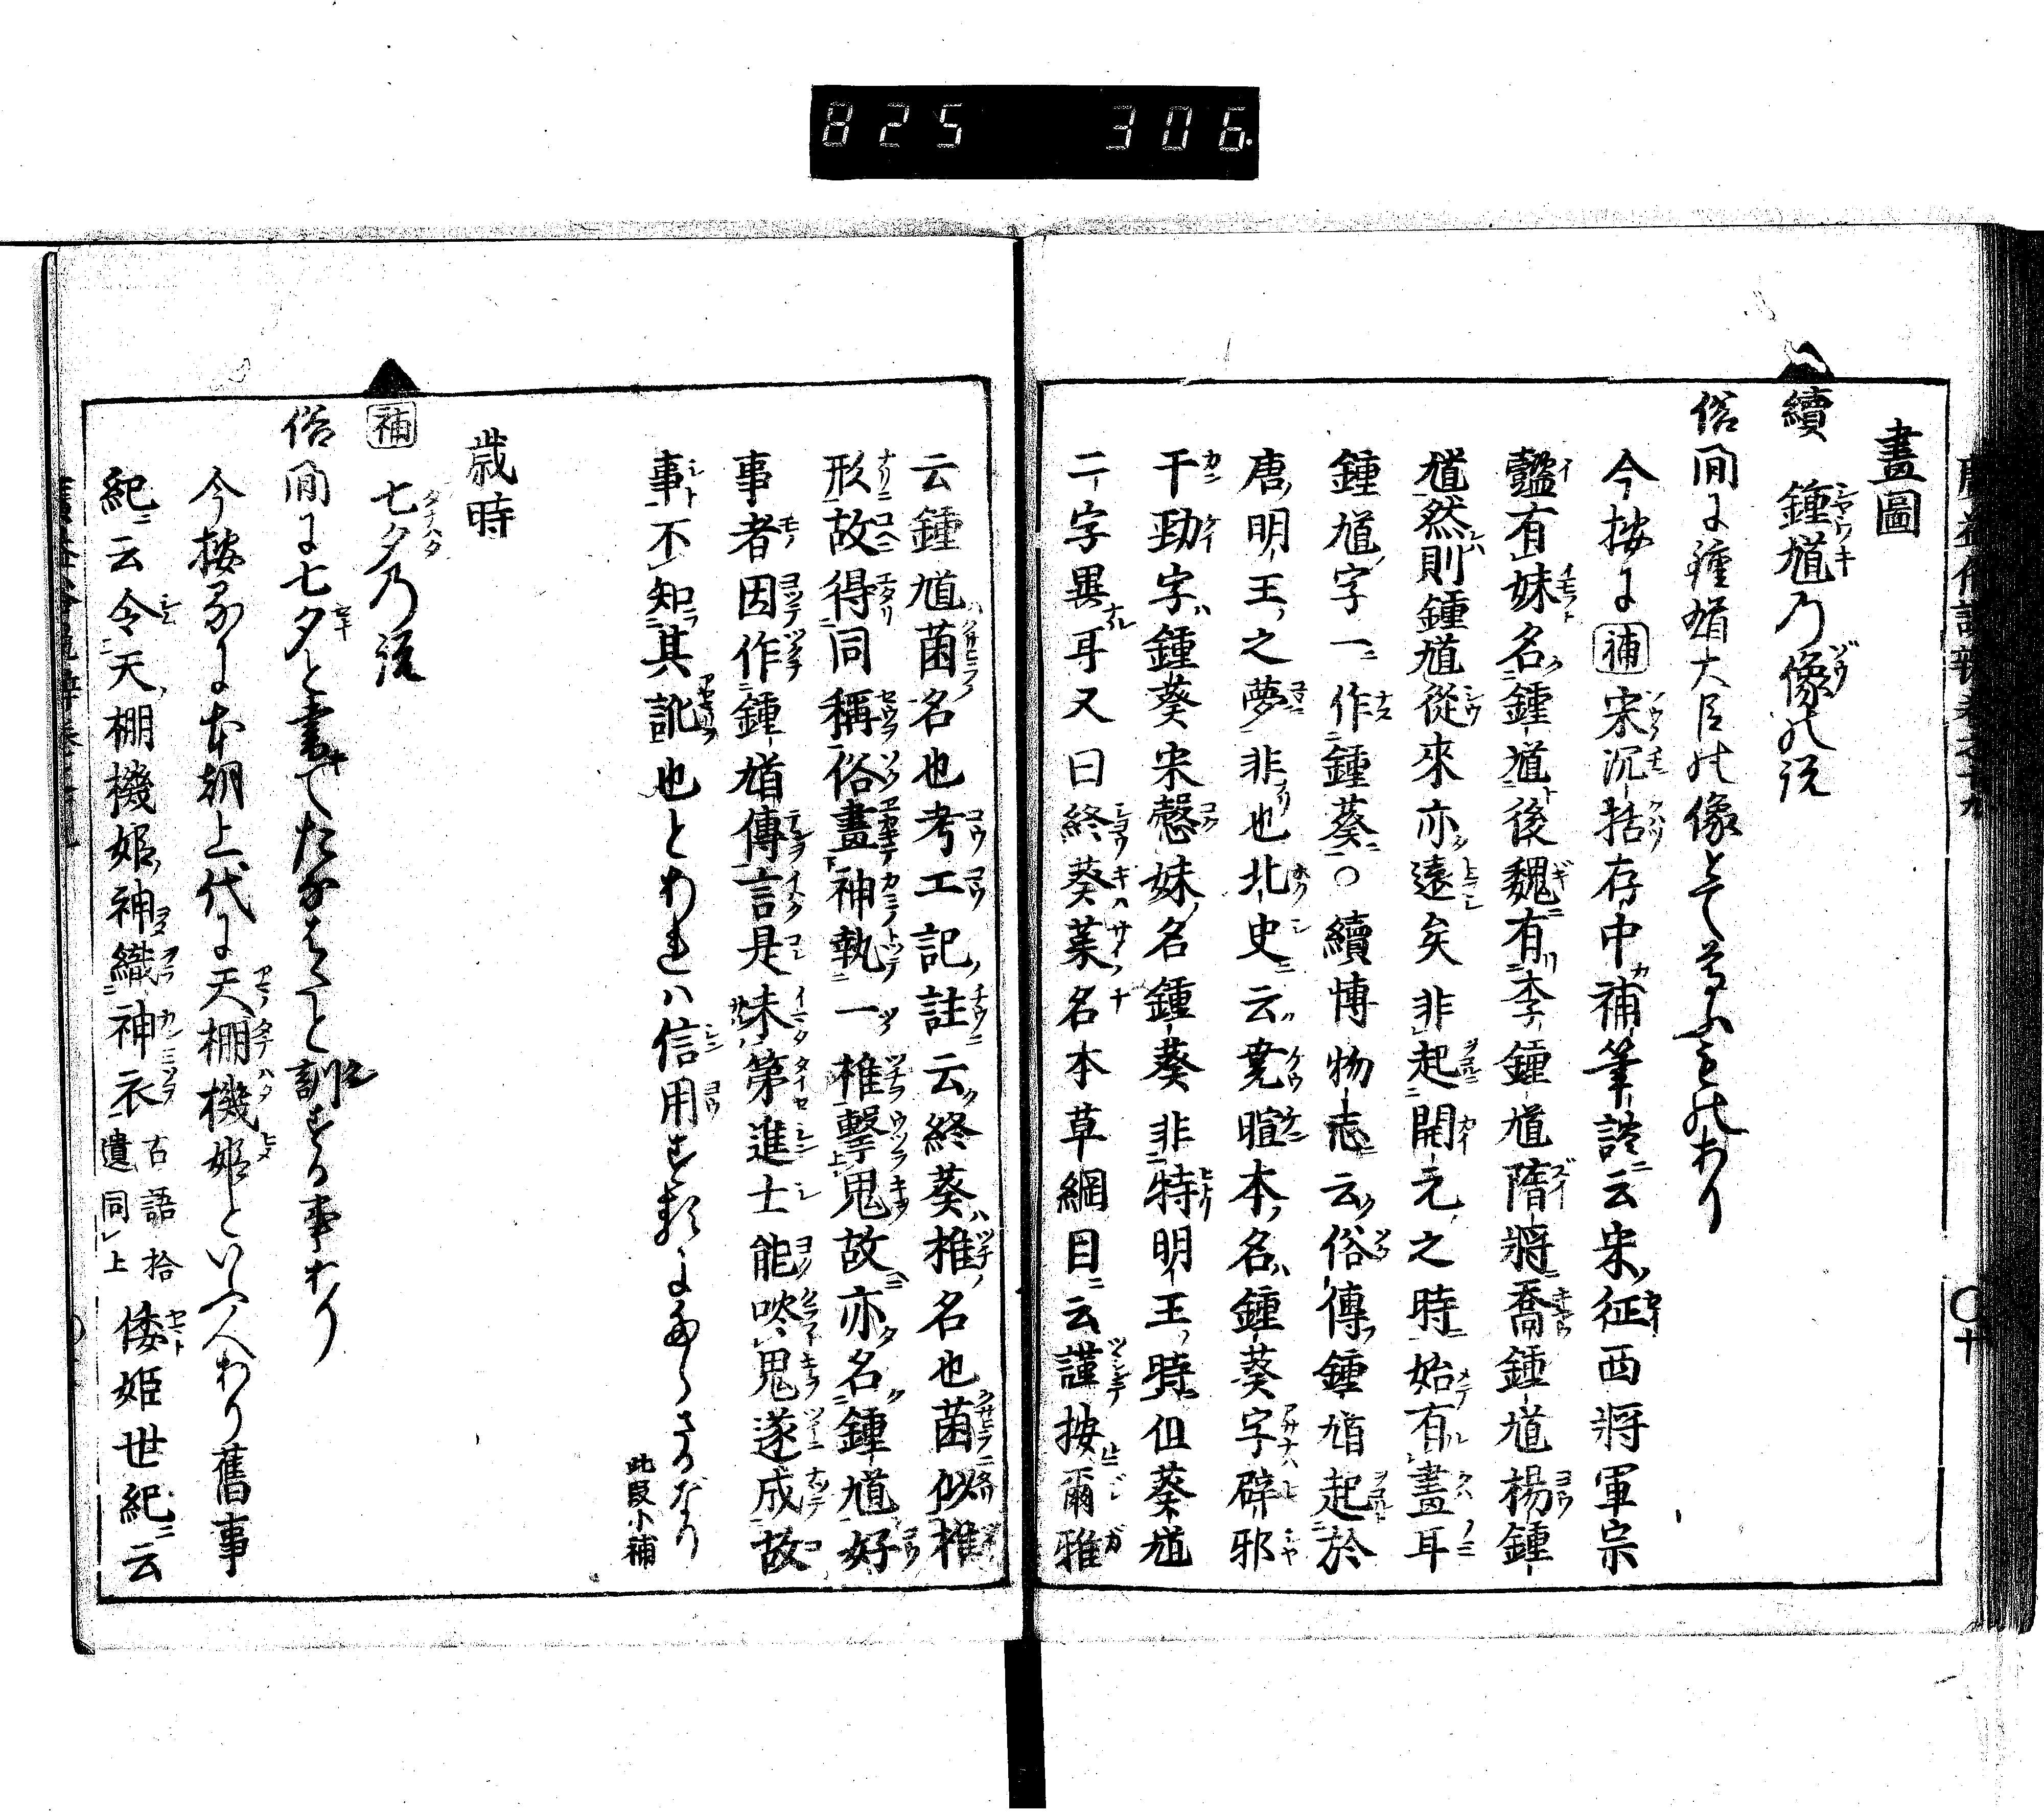 825 306
畫圖
續 鍾馗乃像の説
俗間に鍾馗大臣の像とて尊ふものあり
今按に補宋沉括存中補筆談云宋征西將軍宗
慤有妹名鍾馗後魏有李鍾馗隋將喬鍾馗楊鍾
馗然則鍾馗從來亦遠矣非起開元之時始有畫耳
鍾馗字一作鍾葵○續博物志云俗傳鍾馗起於
唐明王之夢非也北史云堯暄本名鍾葵字辟邪
干勁字鍾葵宋慤妹名鍾葵非特明王時但葵馗
二字異耳又曰終葵菜名本草綱目云謹按爾雅
云鍾馗菌名也考工記註云終葵椎名也菌似椎
形故得同稱俗畫神執一椎擊鬼故亦名鍾馗好
事者因作鍾馗傳言是未第進士能啖鬼遂成故
事不知其訛也とあれハ信用するに
此段小補
歳時
補 七夕乃説
俗間に七夕と書てたなはたと訓する事あり
今按るに本朝上代に天棚機姫といふ人あり舊事
紀云令天棚機姫神織神衣古語拾遺同上倭姫世紀云